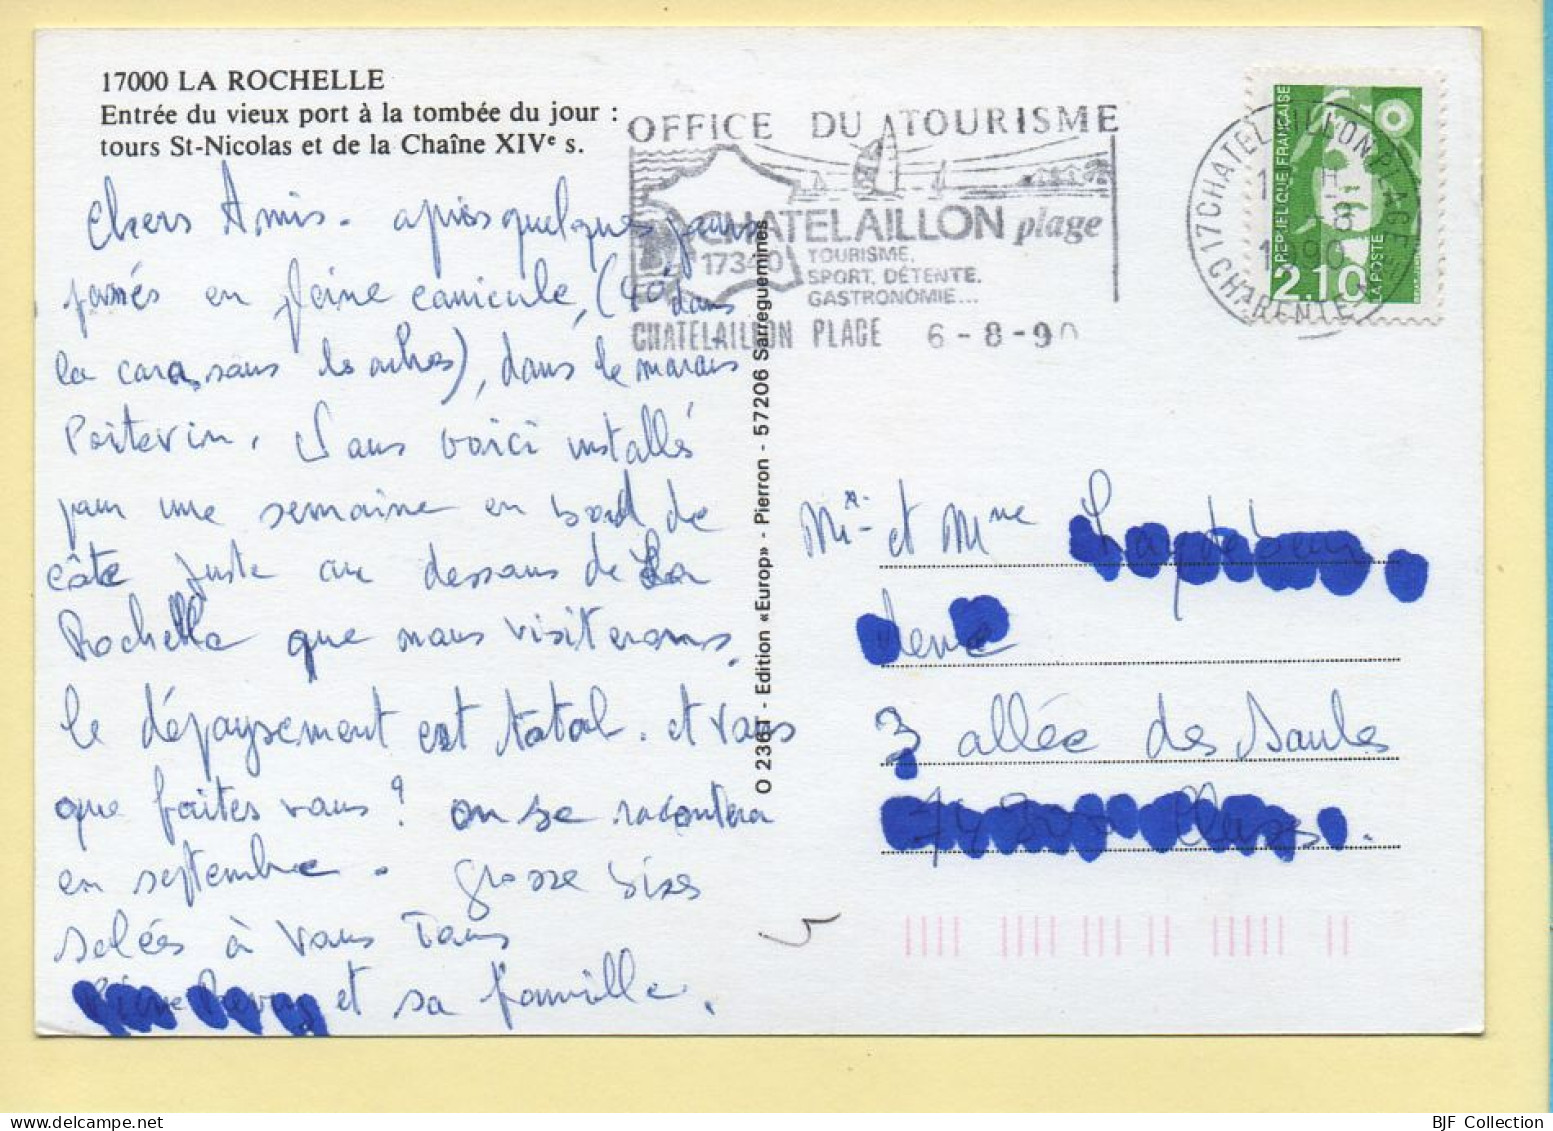 17000 LA ROCHELLE
Entrée du vieux port à la tombée du jour :
tours St-Nicolas et de la Chaîne XIVe s.
OFFICE DU TOURISME
CHATELAILLON plage
17340
TOURISME.
SPORT. DÉTENTE.
GASTRONOMIE...
CHATELAILLON PLAGE 6-8-90
17 CHATELAILLON PLAGE
6-8
1990
CHARENTE
REPUBLIQUE FRANÇAISE
2,10
LA POSTE
Chers Amis. après quelques jours
passés en pleine canicule, (40° dans
la cara, sans les arbres), dans le marais
Poitevin. Nous voici installés
pour une semaine en bord de
côte juste au dessous de La
Rochelle que nous visiterons.
le dépaysement est total. et vous
que faites vous ? on se racontera
en septembre. grosse bises
salées à vous Tous
et sa famille.
O 2361 - Edition «Europ» - Pierron - 57206 Sarreguemines
Mr et Mme
3 allée des Saules
BJF Collection